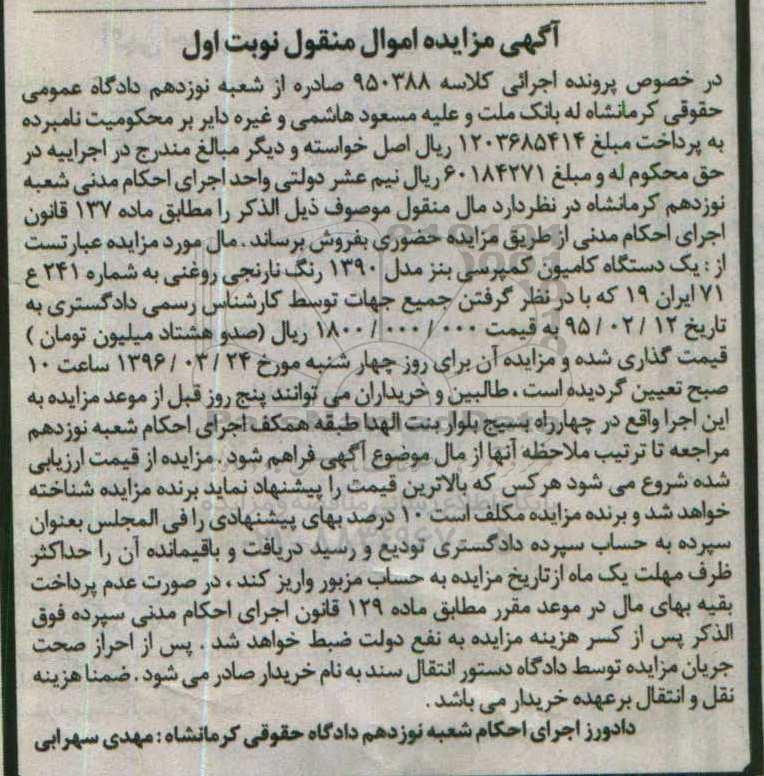 آگهی مزایده اموال منقول نوبت اول
در خصوص پرونده اجرائی کلاسه ۹۵۰۳۸۸ صادره از شعبه نوزدهم دادگاه عمومی
حقوقی کرمانشاه له بانک ملت و علیه مسعود هاشمی و غیره دایر بر محکومیت نامبرده
به پرداخت مبلغ ۱۲۰۳۶۸۵۴۱۴ ریال اصل خواسته و دیگر مبالغ مندرج در اجراییه در
حق محکوم له و مبلغ ۶۰۱۸۴۲۷۱ ریال نیم عشر دولتی واحد اجرای احکام مدنی شعبه
نوزدهم کرمانشاه در نظردارد مال منقول موصوف ذیل الذکر را مطابق ماده ۱۳۷ قانون
اجرای احکام مدنی از طریق مزایده حضوری بفروش برساند . مال مورد مزایده عبارتست
از : یک دستگاه کامیون کمپرسی بنز مدل ۱۳۹۰ رنگ نارنجی روغنی به شماره ۲۴۱ ع
۷۱ ایران ۱۹ که با در نظر گرفتن جمیع جهات توسط کارشناس رسمی دادگستری به
تاریخ ۱۲ / ۰۲ / ۹۵ به قیمت ۰۰۰ / ۰۰۰ / ۱۸۰۰ ریال (صدو هشتاد میلیون تومان )
قیمت گذاری شده و مزایده آن برای روز چهار شنبه مورخ ۲۴ / ۰۳ / ۱۳۹۶ ساعت ۱۰
صبح تعیین گردیده است ، طالبین و خریداران می توانند پنج روز قبل از موعد مزایده به
این اجرا واقع در چهارراه بسیج بلوار بنت الهدا طبقه همکف اجرای احکام شعبه نوزدهم
مراجعه تا ترتیب ملاحظه آنها از مال موضوع آگهی فراهم شود . مزایده از قیمت ارزیابی
شده شروع می شود هرکس که بالاترین قیمت را پیشنهاد نماید برنده مزایده شناخته
خواهد شد و برنده مزایده مکلف است ۱۰ درصد بهای پیشنهادی را فی المجلس بعنوان
سپرده به حساب سپرده دادگستری تودیع و رسید دریافت و باقیمانده آن را حداکثر
ظرف مهلت یک ماه از تاریخ مزایده به حساب مزبور واریز کند ، در صورت عدم پرداخت
بقیه بهای مال در موعد مقرر مطابق ماده ۱۲۹ قانون اجرای احکام مدنی سپرده فوق
الذکر پس از کسر هزینه مزایده به نفع دولت ضبط خواهد شد . پس از احراز صحت
جریان مزایده توسط دادگاه دستور انتقال سند به نام خریدار صادر می شود . ضمنا هزینه
نقل و انتقال برعهده خریدار می باشد .
دادورز اجرای احکام شعبه نوزدهم دادگاه حقوقی کرمانشاه : مهدی سهرابی